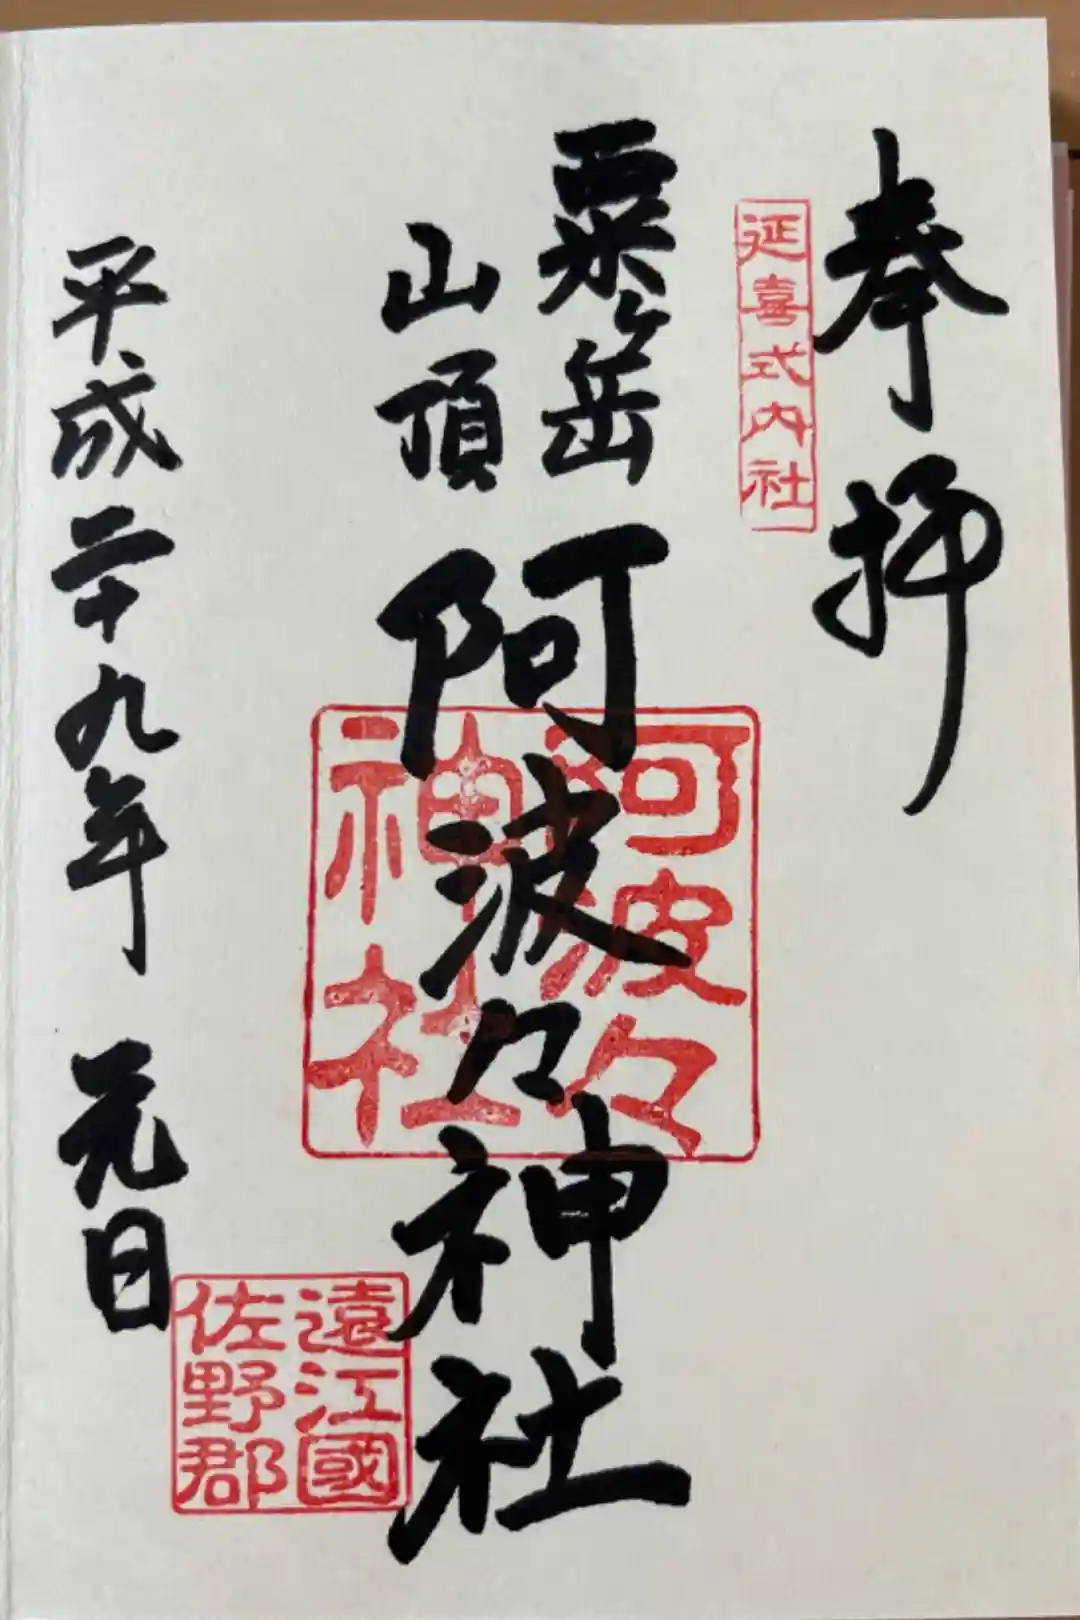 奉拝
延喜式内社
粟ヶ岳
山頂
阿波々神社
阿波々
神社
平成二十九年 元日
遠江國
佐野郡